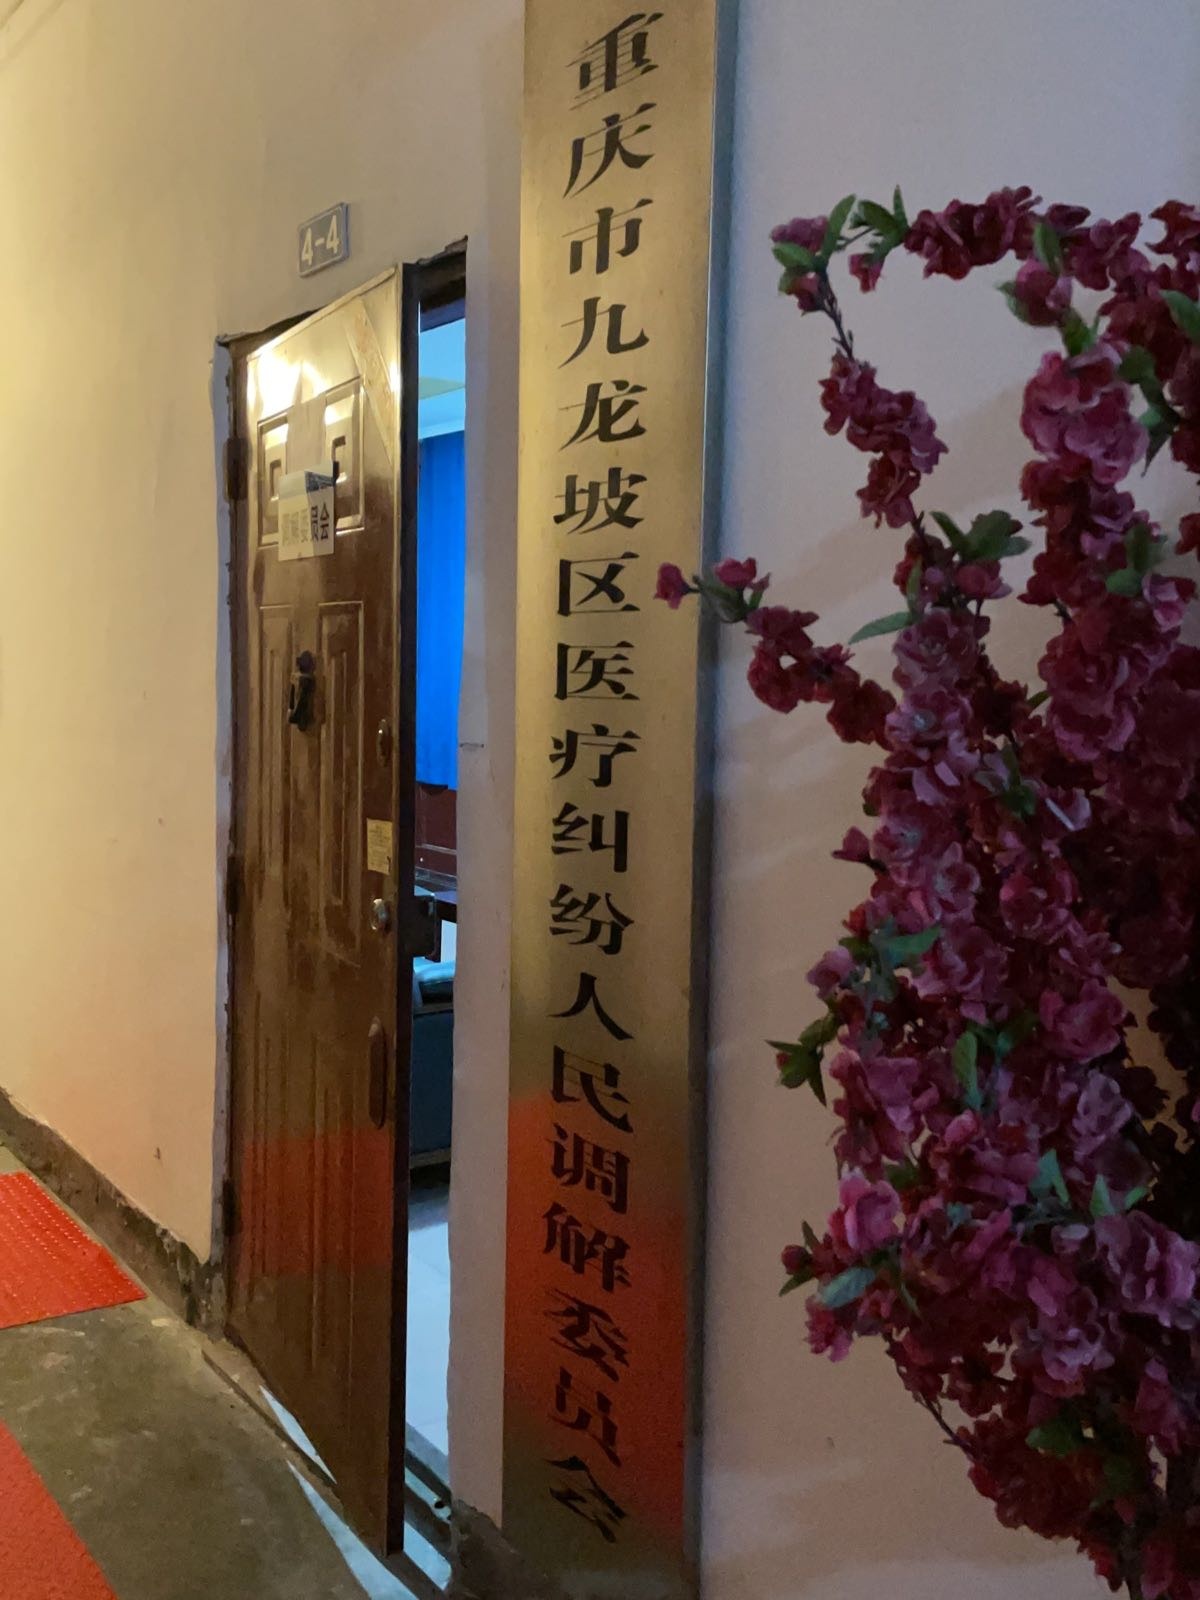 重庆市九龙坡区医疗纠纷人民调解委员会
4-4
调解委员会